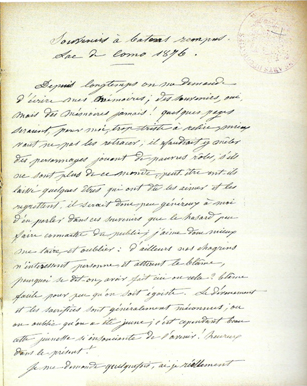 Souvenirs à batons rompus.
Lac de Como 1876.
Depuis longtemps on me demande
d'écrire mes mémoires; des souvenirs, oui
mais des mémoires jamais! quelques pages
seraient pour moi trop triste à écrire mieux
vaut ne pas les retracer, il faudrait y mêler
des personnages jouant de pauvres rôles, s'ils
ne sont plus de ce monde, peut être ont ils
laissé quelques êtres qui ont dû les aimer et les
regrettent, il serait donc peu généreux à moi
d'en parler dans ces souvenirs que le hasard peut
faire connaître du public; j'aime donc mieux
me taire et oublier: d'ailleurs nos chagrins
n'intéressent personne et attirent le blâme,
pourquoi se dit-on avoir fait ceci ou cela? blâme
facile pour peu qu'on soit égoïste. Le dévouement
et les sacrifices sont généralement méconnus, on
oublie qu'on a été jeune; c'est cependant beau
cette jeunesse si insouciante de l'avenir! heureux
dans le présent!
Je me demande quelquefois, ai-je réellement